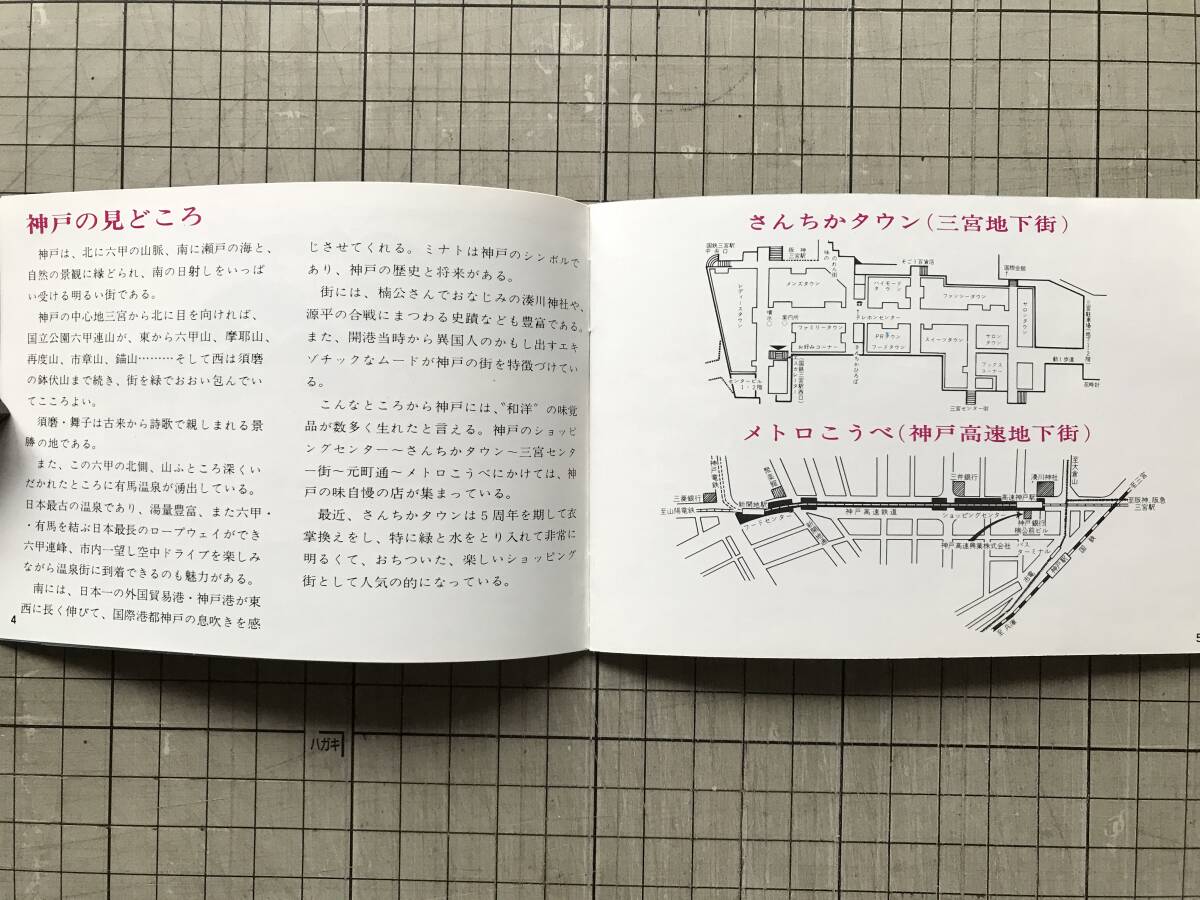 神戸の見どころ
神戸は、北に六甲の山脈、南に瀬戸の海と、
自然の景観に縁どられ、南の日射しをいっぱ
い受ける明るい街である。
神戸の中心地三宮から北に目を向ければ、
国立公園六甲連山が、東から六甲山、摩耶山、
再度山、市章山、錨山………そして西は須磨
の鉢伏山まで続き、街を緑でおおい包んでい
てこころよい。
須磨・舞子は古来から詩歌で親しまれる景
勝の地である。
また、この六甲の北側、山ふところ深くい
だかれたところに有馬温泉が湧出している。
日本最古の温泉であり、湯量豊富、また六甲・
・有馬を結ぶ日本最長のロープウェイができ
六甲連峰、市内一望し空中ドライブを楽しみ
ながら温泉街に到着できるのも魅力がある。
南には、日本一の外国貿易港・神戸港が東
西に長く伸びて、国際港都神戸の息吹きを感
4
じさせてくれる。ミナトは神戸のシンボルで
あり、神戸の歴史と将来がある。
街には、楠公さんでおなじみの湊川神社や、
源平の合戦にまつわる史蹟なども豊富である。
また、開港当時から異国人のかもし出すエキ
ゾチックなムードが神戸の街を特徴づけてい
る。
こんなところから神戸には、〝和洋〟の味覚
品が数多く生れたと言える。神戸のショッピ
ングセンター～さんちかタウン～三宮センタ
ー街～元町通～メトロこうべにかけては、神
戸の味自慢の店が集まっている。
最近、さんちかタウンは5周年を期して衣
裳換えをし、特に緑と水をとり入れて非常に
明るくて、おちついた、楽しいショッピング
街として人気の的になっている。
さんちかタウン(三宮地下街)
国鉄三宮駅
中央口
阪神
三宮駅
味の
のれん街
そごう百貨店
国際会館
メンズタウン
ハイモード
タウン
ファッシータウン
レディースタウン
サロンタウン
噴水
案内所
テレホンセンター
ファミリータウン
お好みコーナー
PRタウン
フードタウン
スイーツタウン
サロン
タウン
ブックス
コーナー
さんちかひろば
動く歩道
花時計
センタービル
1・2階
三宮センター街
メトロこうべ(神戸高速地下街)
神戸電鉄
三菱銀行
至山陽電鉄
新開地駅
聚楽館
フードセンター
神戸高速鉄道
三井銀行
ショッピングセンター
高速神戸駅
湊川神社
至大倉山
至三宮
至阪神、阪急
三宮駅
神戸銀行
楠公前ビル
神戸高速興業株式会社
バス
ターミナル
市電
神戸駅
国鉄
至兵庫
5
ハガキ